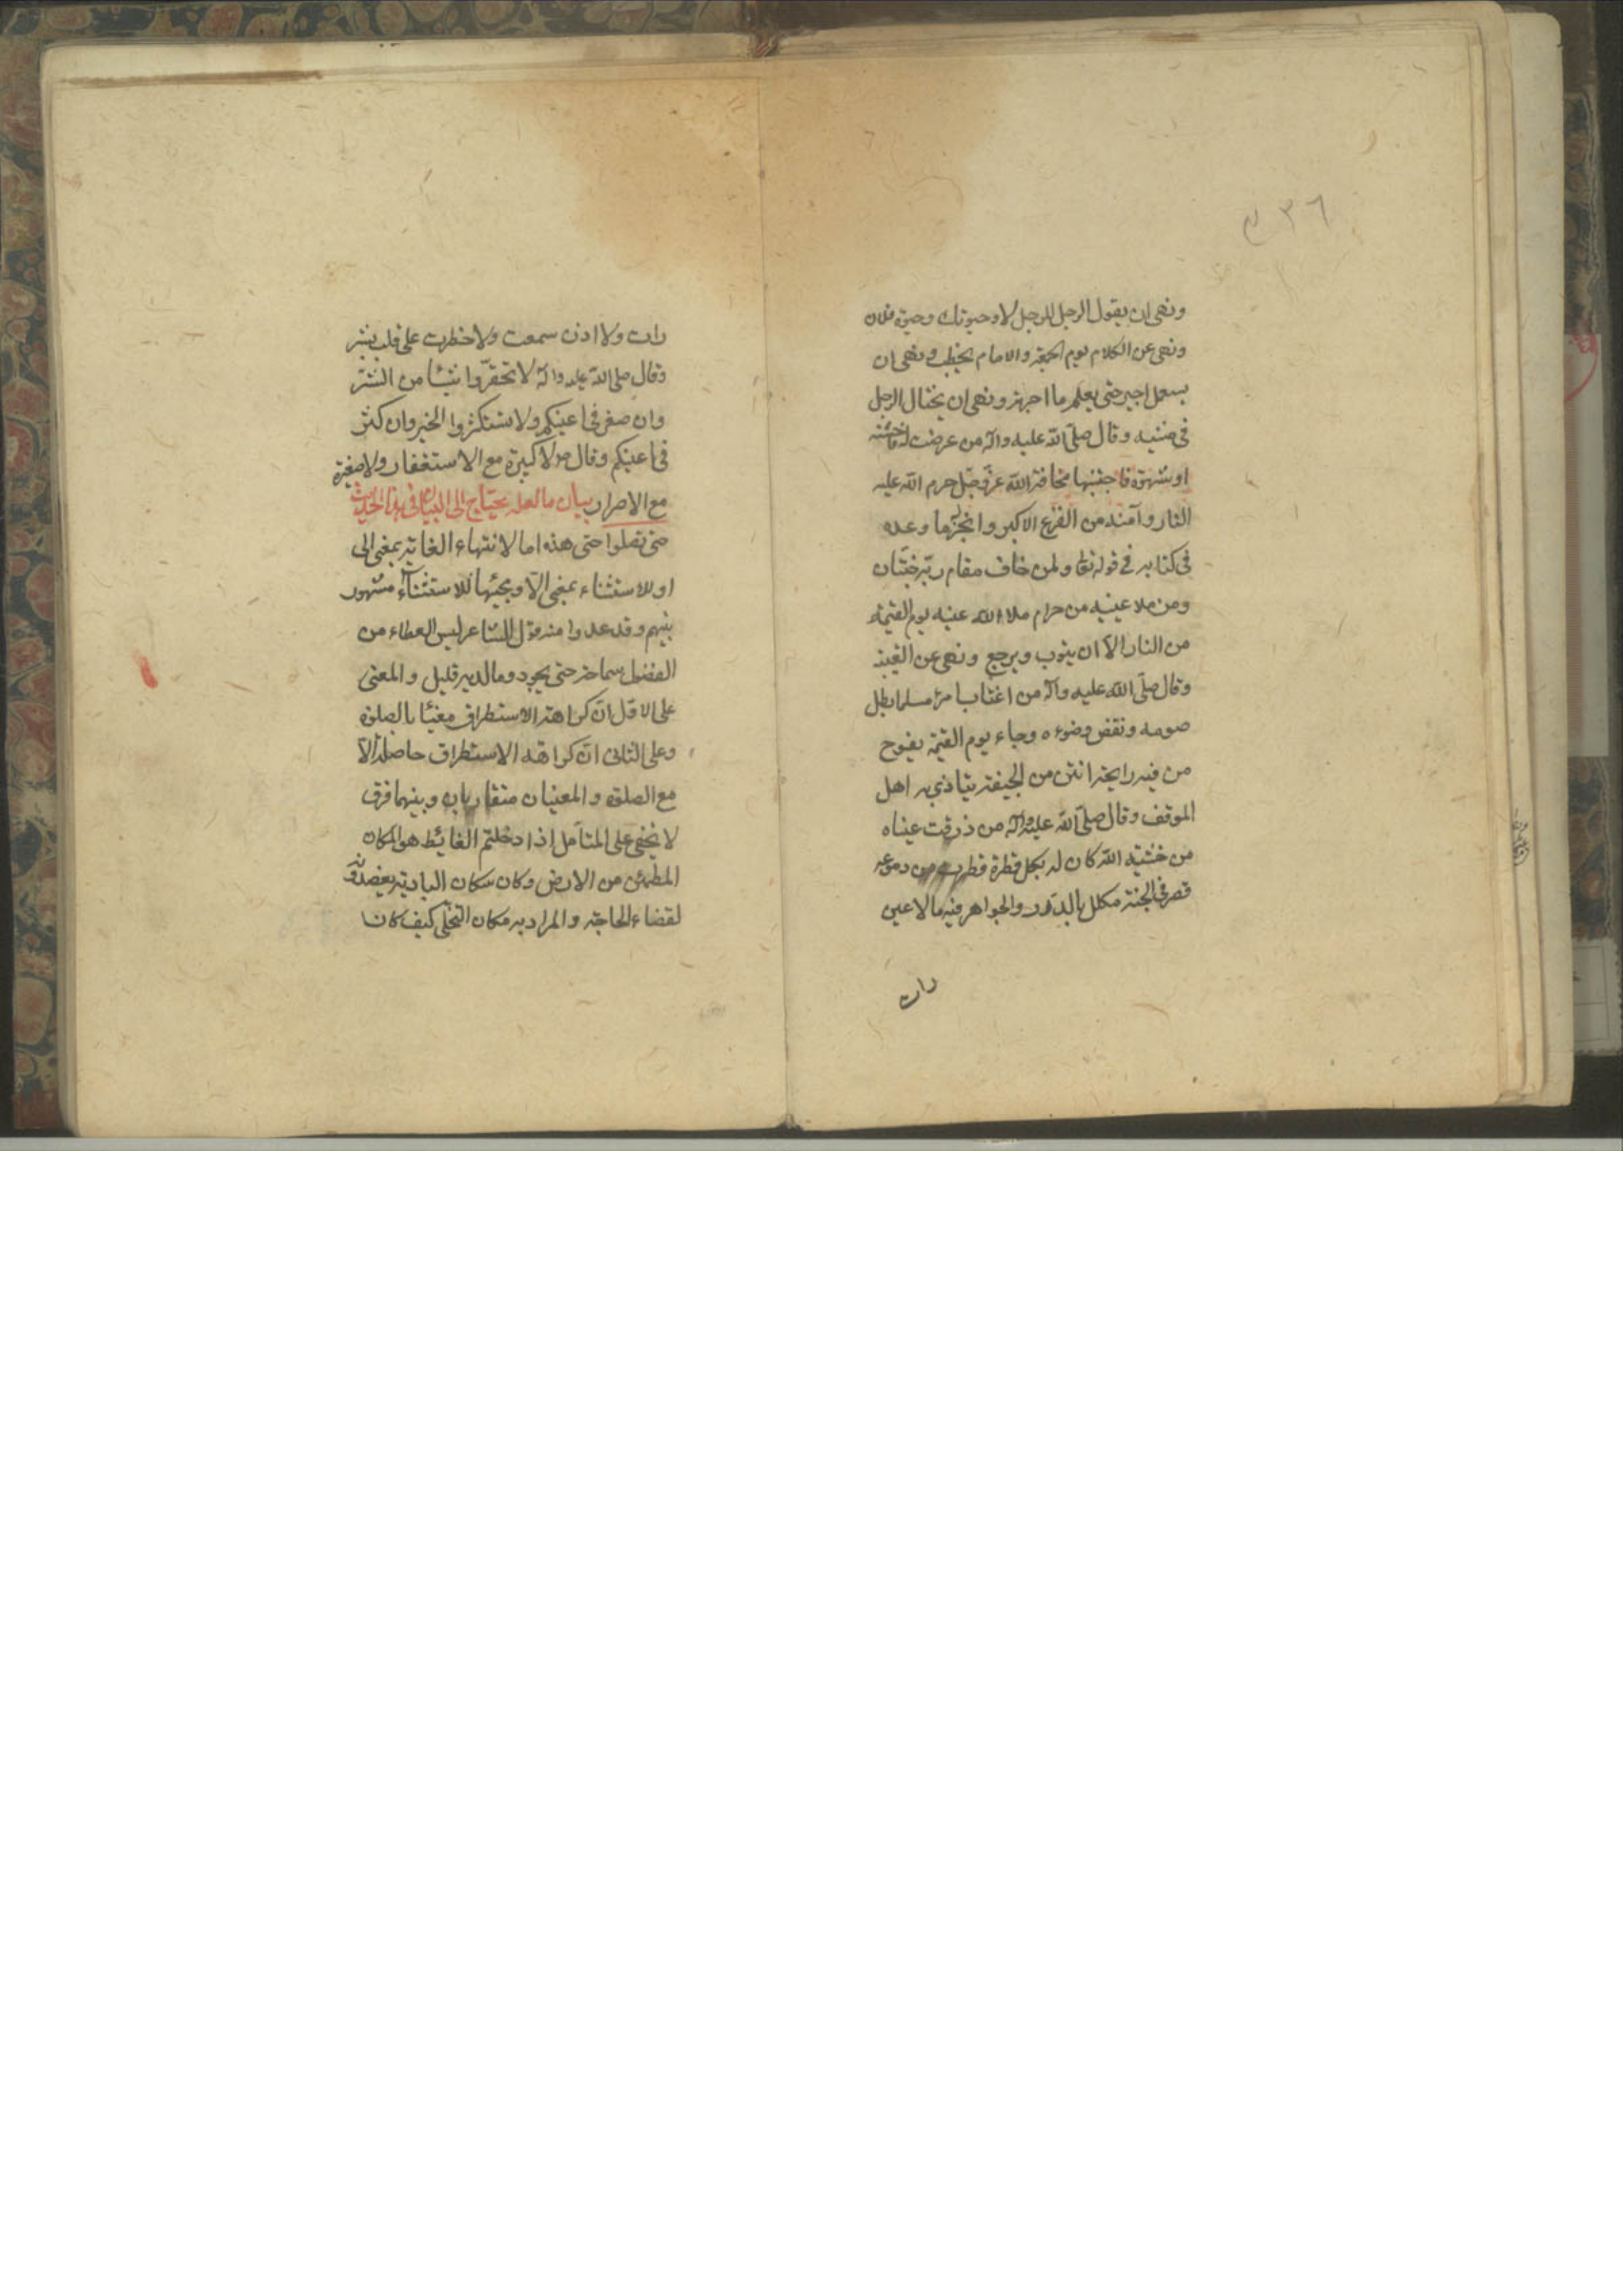 ٣٦
ونهى ان يقول الرجل للرجل لا وحيوتك وحيوة فلان
ونهى عن الكلام يوم الجمعة والامام يخطب ونهى ان
يستعمل اجير حتى يعلم ما اجرته ونهى ان يختال الرجل
فى مشيه وقال صلّى الله عليه وآله من عرضت له فاحشة
او شهوة فاجتنبها مخافة الله عزّ وجلّ حرم الله عليه
النار وآمنه من الفزع الاكبر وانجز له ما وعده
فى كتابه فى قوله تعا ولمن خاف مقام ربّه جنّتان
ومن ملا عينيه من حرام ملاء الله عينيه يوم القيمة
من النار الّا ان يتوب ويرجع ونهى عن الغيبة
وقال صلّى الله عليه وآله من اغتاب امرء مسلما بطل
صومه ونقض وضوءه وجاء يوم القيمة يفوح
من فيه رايحة انتن من الجيفة يتاذى به اهل
الموقف وقال صلّى الله عليه وآله من ذرفت عيناه
من خشية الله كان له بكل قطرة قطرت من دموعه
قصر فى الجنة مكلل بالدّرر والجواهر فيه ما لا عين
رات
رات ولا اذن سمعت ولا خطرت على قلب بشر
وقال صلى الله عليه وآله لا تحقّروا شيئا من الشّر
وان صغر فى اعينكم ولا تستكثروا الخير وان كثر
فى اعينكم وقال ص لا كبيرة مع الاستغفار ولا صغيرة
مع الاصرار بيان ما لعله يحتاج الى البيان فى هذا الحديث
حتى تصلوا حتى هذه اما لانتهاء الغاية بمعنى الى
او للاستثناء بمعنى الّا ومجيئها للاستثناء مشهور
بينهم وقد عدوا منه قول الشاعر ليس العطاء من
الفضول سماحة حتى يجود وما لديه قليل والمعنى
على الاول انّ كراهة الاستطراق مغيّا بالصلوة
وعلى الثانى انّ كراهة الاستطراق حاصلة الّا
مع الصلوة والمعنيان متقاربان وبينهما فرق
لا يخفى على المتامل اذا دخلتم الغايط هو المكان
المطمئن من الارض وكان سكان البادية يقصدونه
لقضاء الحاجة والمراد به مكان التخلّى كيف كان